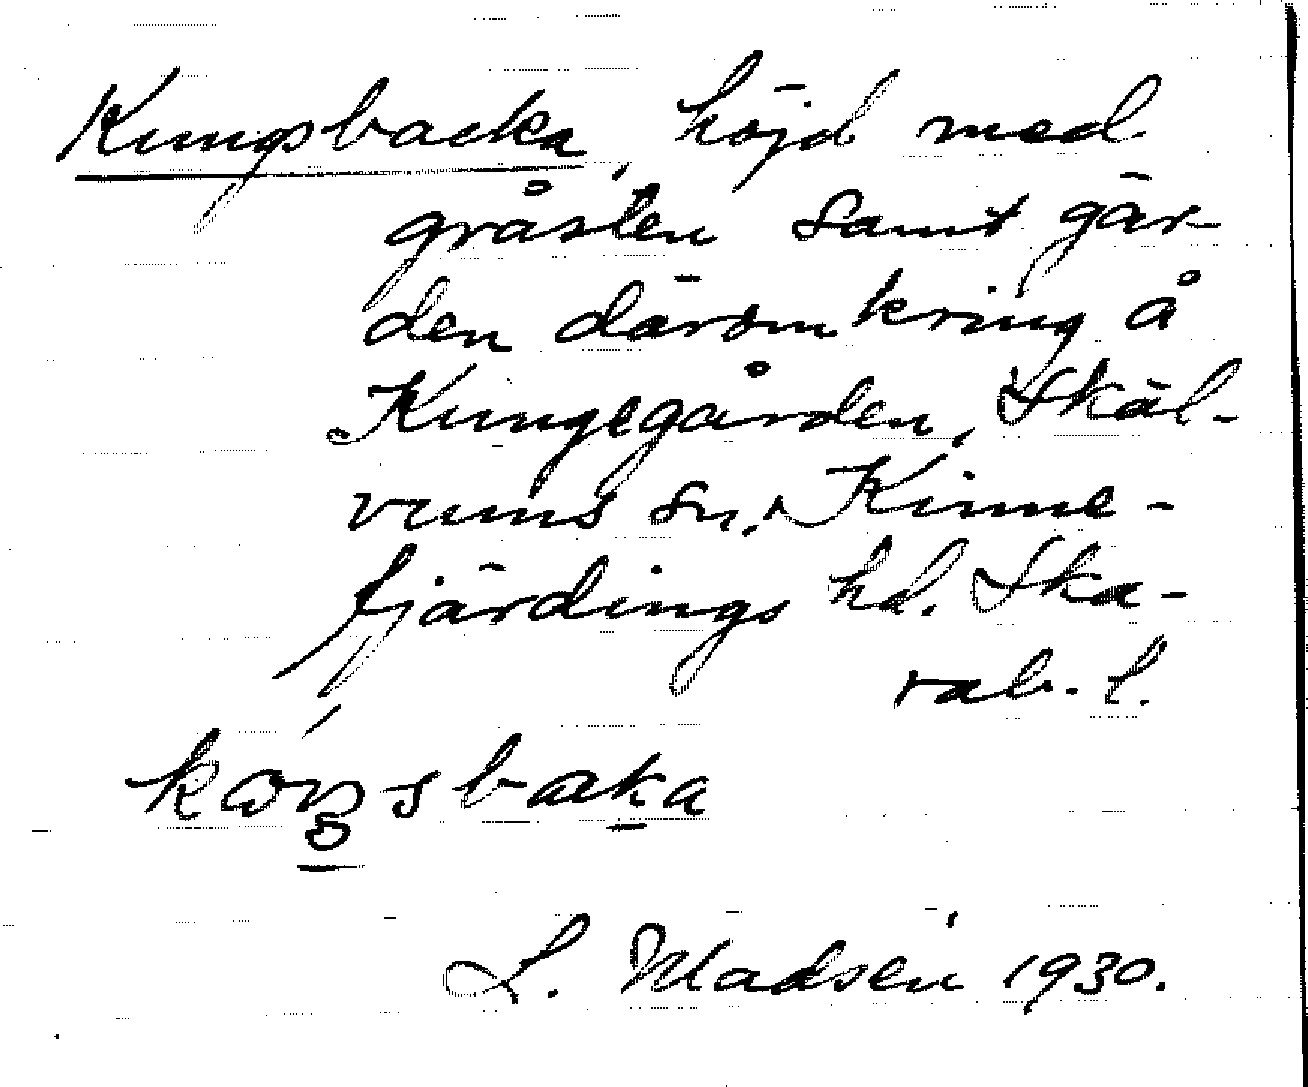 Kungsbacka, höjd med
gråsten samt gär-
den däromkring å
Kungegården, Skäl-
vums sn. Kinne-
fjärdings hd. Ska-
rab. l.
L. Madsén 1930.